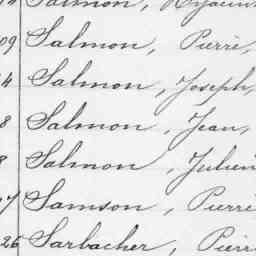 Salmon,
09 Salmon, Pierre,
4 Salmon, Joseph,
8 Salmon, Jean,
8 Salmon, Julien
7 Samson, Pierre
26 Sarbacher, Pierr